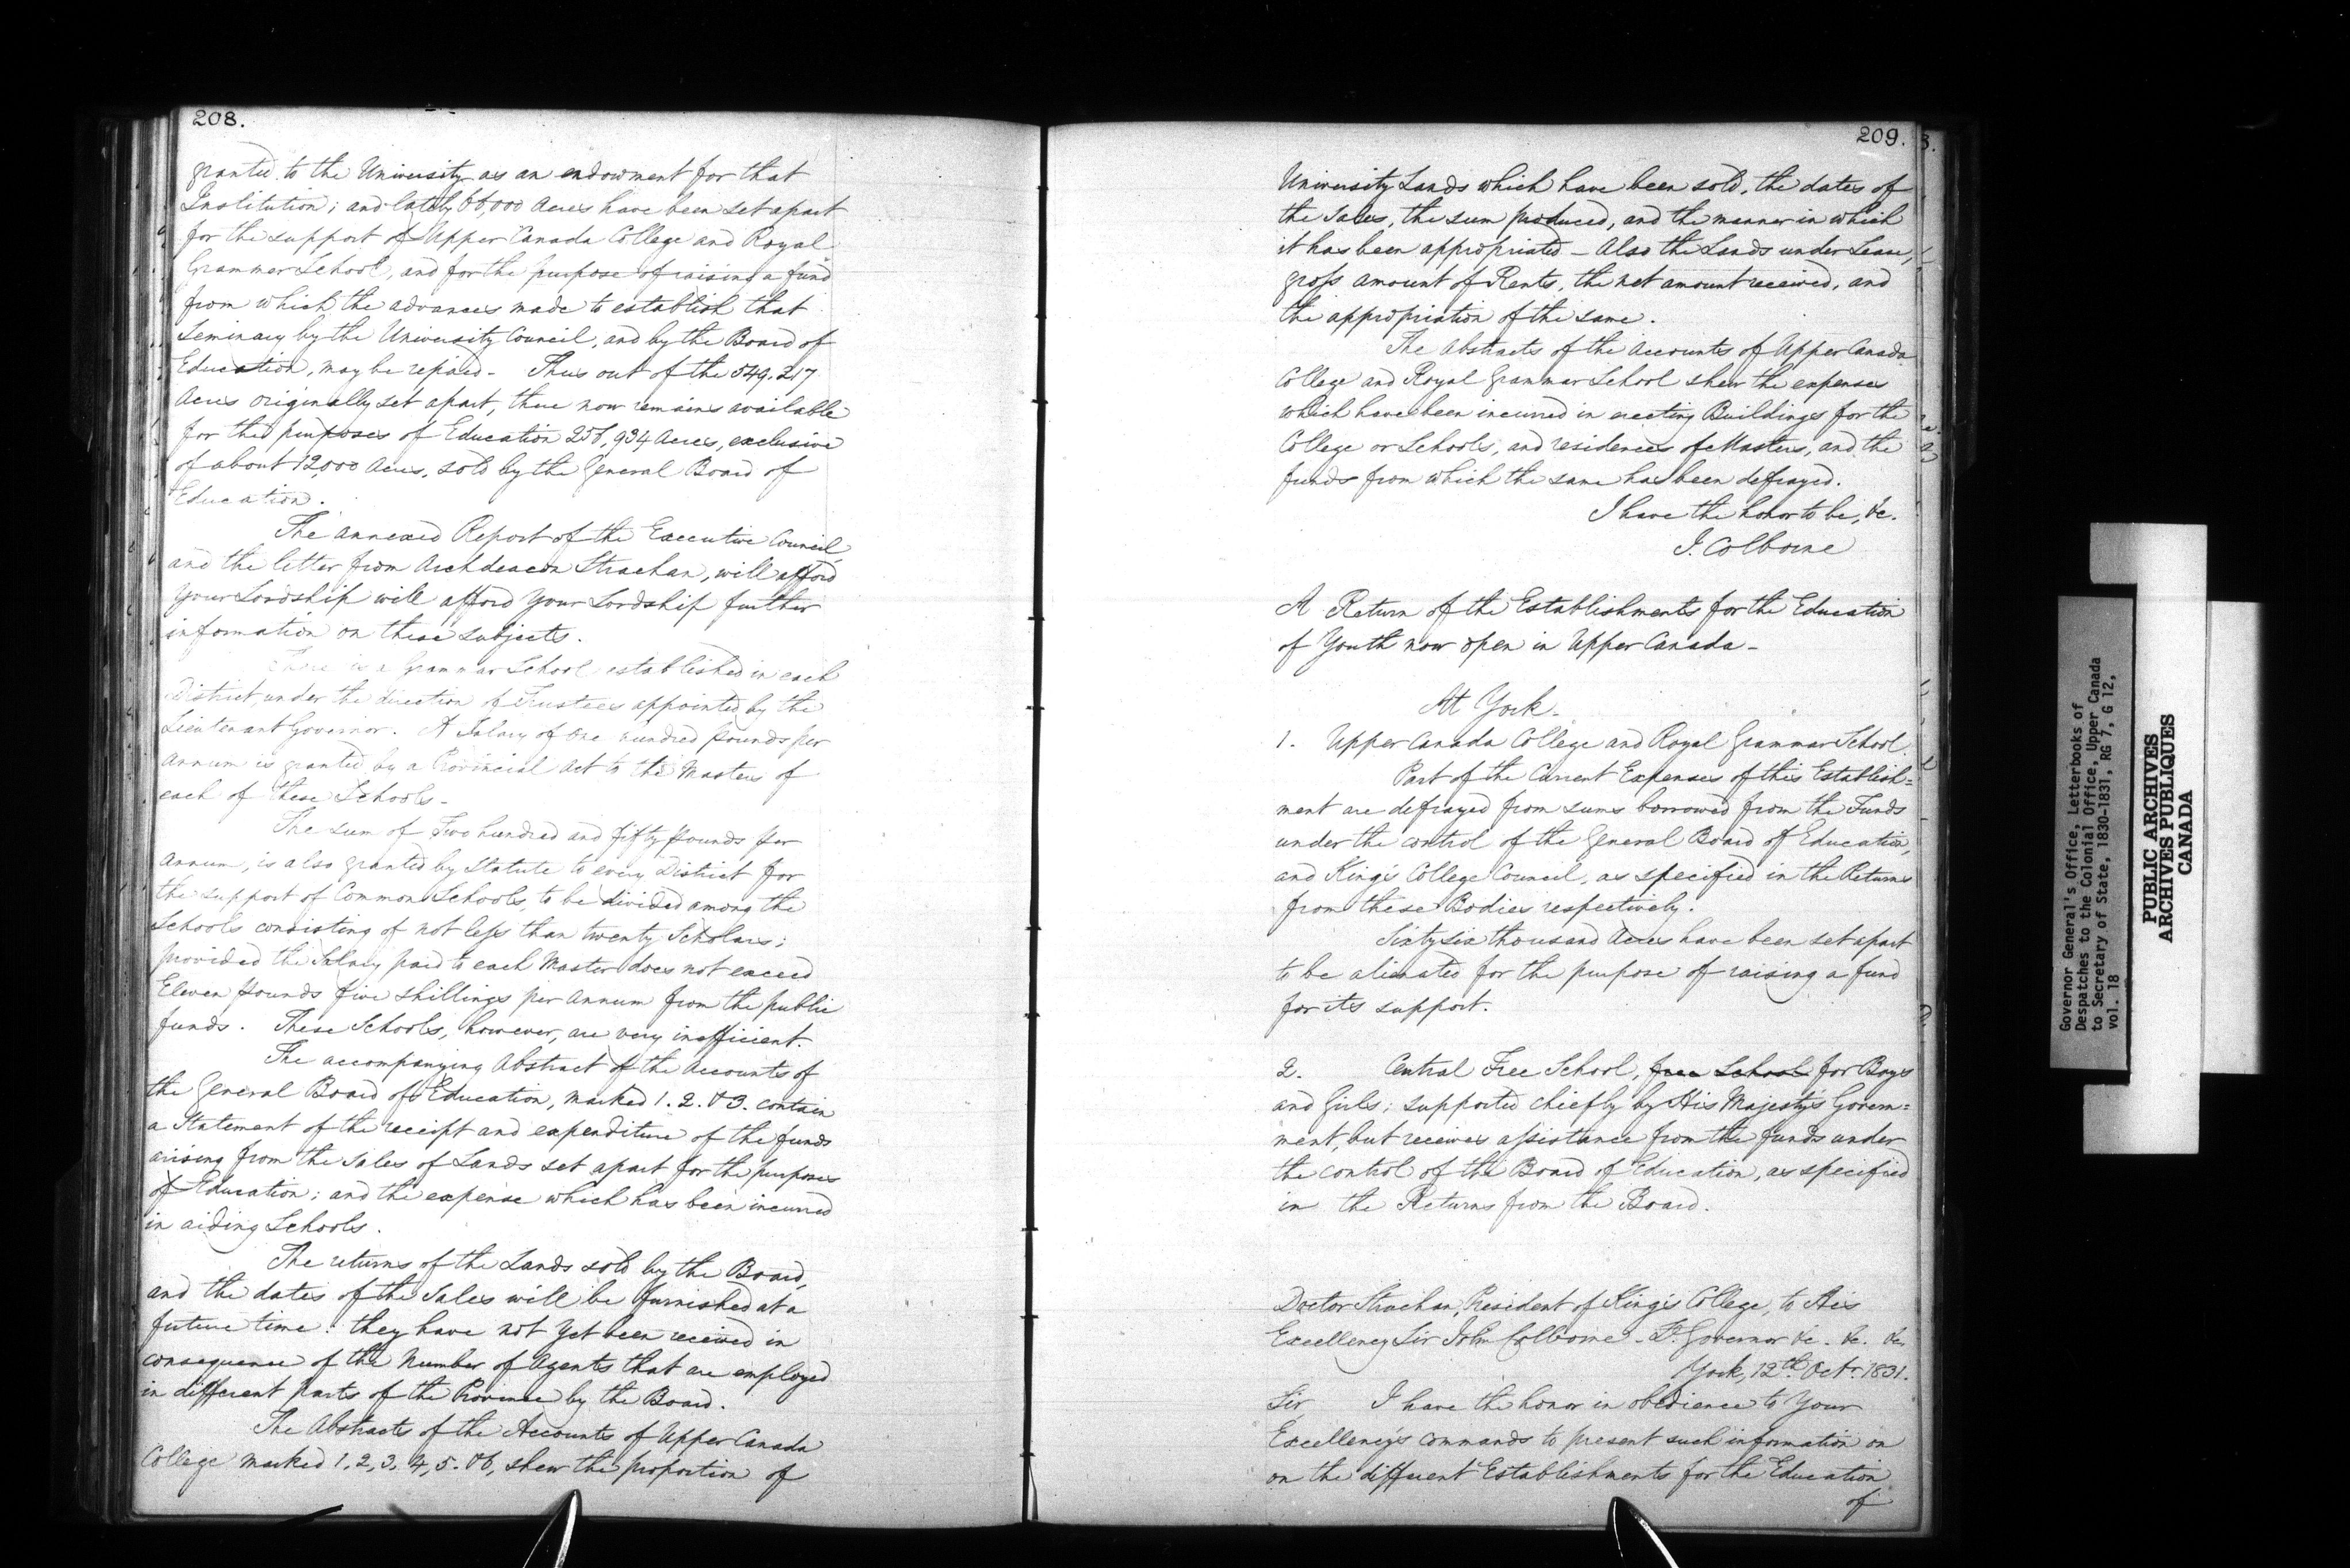 208.
granted to the University as an endowment for that
Institution; and lately 66,000 Acres have been set apart
for the support of Upper Canada College and Royal
Grammar School, and for the purpose of raising a fund
from which the advances made to establish that
Seminary by the University Council, and by the Board of
Education, may be repaid - Thus out of the 549.217
Acres originally set apart, there now remains available
for the purposes of Education 256,934 Acres, exclusive
of about 12,000 Acres, sold by the General Board of
Education.
The annexed Report of the Executive Council,
and the letter from Archdeacon Strachan, will afford
Your Lordship will afford Your Lordship further
information on these subjects.
There is a Grammar School established in each
District, under the direction of Trustees appointed by the
Lieutenant Governor. A Salary of One hundred pounds per
Annum is granted by a Provincial Act to the Masters of
each of these Schools -
The sum of Two hundred and fifty pounds per
Annum, is also granted by Statute to every District for
the support of Common Schools, to be divided among the
Schools consisting of not less than twenty Scholars;
provided the Salary paid to each Master does not exceed
Eleven pounds five shillings per Annum from the public
funds. These Schools, however, are very inefficient.
The accompanying Abstract of the Accounts of
the General Board of Education, marked 1. 2. & 3. contain
a Statement of the receipt and expenditure of the funds
arising from the Sales of Lands set apart for the purposes
of Education; and the expense which has been incurred
in aiding Schools.
The returns of the Lands sold by the Board,
and the dates of the Sales will be furnished at a
future time: they have not yet been received in
consequence of the number of Agents that are employed
in different parts of the Province by the Board.
The Abstracts of the Accounts of Upper Canada
College marked 1, 2, 3, 4, 5. & 6, shew the proportion of
209.
University Lands which have been sold, the dates of
the Sales, the sum produced, and the manner in which
it has been appropriated - Also the Lands under Lease,
gross amount of Rents, the net amount received, and
the appropriation of the same.
The Abstracts of the Accounts of Upper Canada
College and Royal Grammar School shew the expenses
which have been incurred in erecting Buildings for the
College or Schools, and residences of Masters, and the
funds from which the same has been defrayed.
I have the honor to be, &c.
J. Colborne
A Return of the Establishments for the Education
of Youth now open in Upper Canada -
At York -
1. Upper Canada College and Royal Grammar School.
Part of the Current Expenses of this Establish=
ment are defrayed from sums borrowed from the Funds
under the control of the General Board of Education,
and Kings College Council, as specified in the Returns
from these Bodies respectively.
Sixty six thousand Acres have been set apart
to be alienated for the purpose of raising a fund
for its support.
2. Central Free School, free School for Boys
and Girls; supported chiefly by His Majesty's Govern=
ment, but receives assistance from the funds under
the control of the Board of Education, as specified
in the Returns from the Board.
Doctor Strachan, President of King's College, to His
Excellency Sir John Colborne - Lt. Governor &c. &c. &c.
York, 12th Octr. 1831.
Sir, I have the honor in obedience to Your
Excellency's commands to present such information on
on the different Establishments for the Education
of
Governor General's Office, Letterbooks of
Despatches to the Colonial Office, Upper Canada
to Secretary of State, 1830-1831, RG 7, G 12,
vol. 18
PUBLIC ARCHIVES
ARCHIVES PUBLIQUES
CANADA